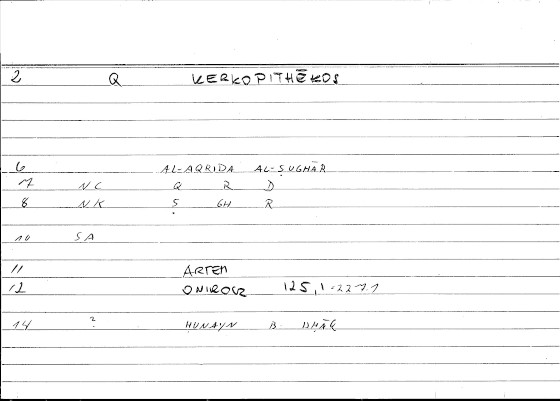 2 Q KERKOPITHĒKOS
6 AL-AQRIDA AL-ṢUGHĀR
7 NC Q R D
8 NK Ṣ GH R
10 SA
11 ARTEM
12 ONIROCR 125,1
14 ? HUNAYN B.